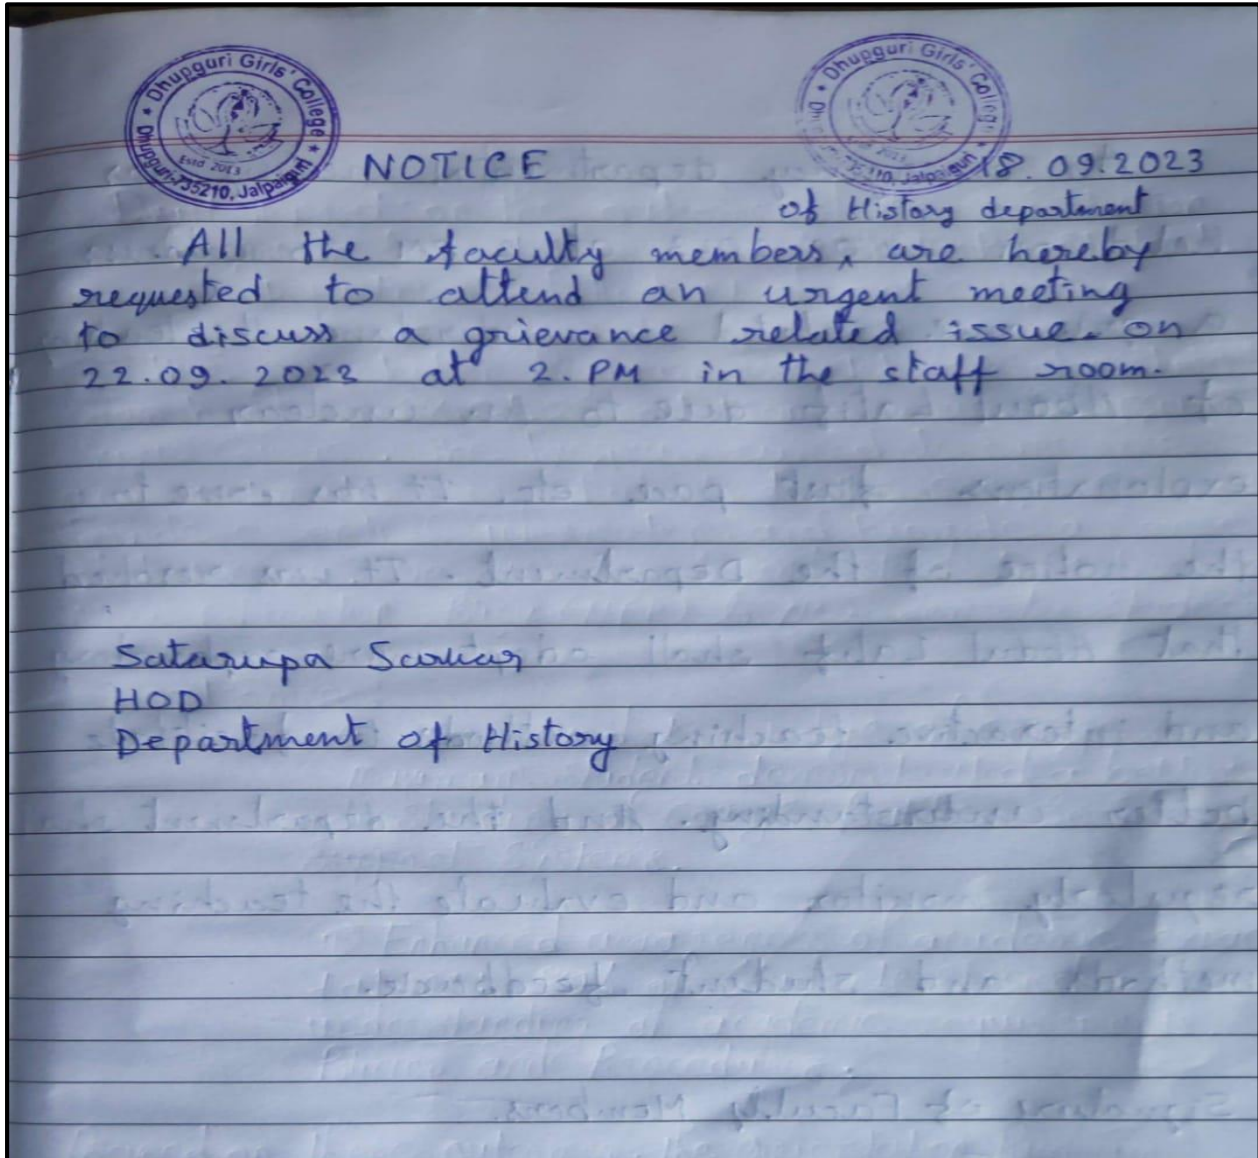 Dhupguri Girls' College
Estd 2013
Dhupguri, 735210, Jalpaiguri
Dhupguri Girls' College
NOTICE 18.09.2023
of History department
All the faculty members, are hereby
requested to attend an urgent meeting
to discuss a grievance related issue on
22.09.2023 at 2. PM in the staff room.
Satarupa Sarkar
HOD
Department of History